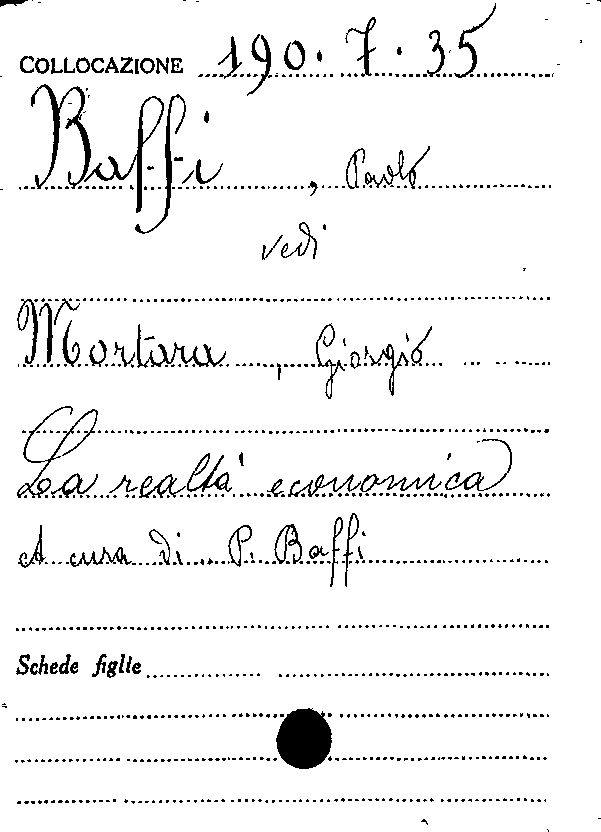 COLLOCAZIONE 190.7.35
Baffi, Paolo
vedi
Mortara, Giorgio
La realtà economica
A cura di P. Baffi
Schede figlie